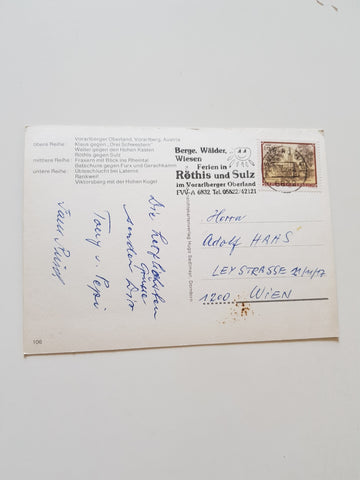 Vorarlberger Oberland, Vorarlberg, Austria
obere Reihe: Klaus gegen „Drei Schwestern"
Weiler gegen den Hohen Kasten
Röthis gegen Sulz
mittlere Reihe: Fraxern mit Blick ins Rheintal
Gatschune gegen Furx und Gerachkamm
untere Reihe: Übleschlucht bei Laterns
Rankweil
Viktorsberg mit der Hohen Kugel
Berge, Wälder,
Wiesen
Ferien in
Röthis und Sulz
im Vorarlberger Oberland
FVV-A 6832 Tel. 05522/42121
Herrn
Adolf HAAS
LEYSTRASSE
1200 WIEN
Die herzlichsten
Grüsse
senden Dir
Tony u. Pepi
106